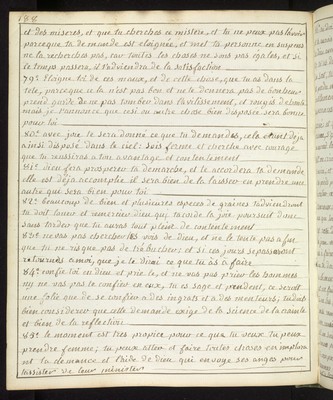 188
et des misores, et que tu cherches ce mistere, et tu ne peux pas l'avoir
parceque ta demande est eloignée, et met ta personne en suspens
ne la recherches pas, car toutes les choses ne sons pas egales, et si
le temps passera, il t'adviendra de la satisfaction
79.º Eloigne toi de ces maux, et de celle chose, que tu as dans la
tete, parceque ce la n'est pas bon et ne te donnera pas de bonheur
prend garde de ne pas tomber dans l'avilissement, et rougis de honte
mais je t'annonce que ceci ou autre chose bien disposée sera bonne
pour toi
80.º avec joie te sera donné ce que tu demandes, cela etant deja
ainsi disposé dans le ciel: sois ferme et cherche avec courage
que tu reussiras a ton avantage et contentement
81.º dieu fera prosperer ta demarche, et te accordera ta demande
elle est deja accomplie il sera bien de la laisser en prendre une
autre qui sera bien pour toi
82.º beaucoup de bien et plusieures especes de graines t'adviendront
tu doit louer et remercier dieu qui t'acorde la joie poursuit donc
sans tarder que tu auras tout plein de contentement
83.º ne vas pas chercher les voies de dieu, et ne te hate pas a fin
que tu ne risque pas de trebucher et si ces jours se passeront
retourne a moi, que je te dirai ce que tu as a faire
84.º confie toi en dieu et prie le, et ne vas pas prier les hommes
ny ne vas pas te confier en eux, tu es sage et prudent, ce seroit
une folie que de se confier a des ingrats et a des menteurs, tu dois
bien considerer que cette demande exige de la science de la crainte
et bien de la reflection
85.º le moment est tres propice pour ce que tu veux tu peux
prendre femme, tu peux aller et faire toutes choses en implorant
ta demance et l'aide de dieu qui envoye ses anges pour
t'assister de leur ministere